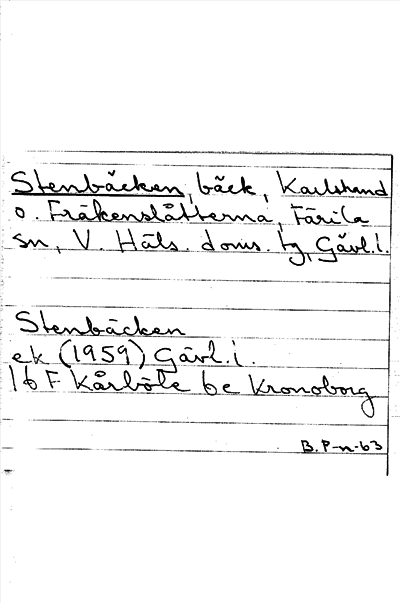 Stenbäcken, bäck, Karlstrand
o. Fräkenslåtterna, Färila
sn, V. Häls. doms. tg, Gävl. l.
Stenbäcken
ek (1959) Gävl. l.
16 F Kårböle 6e Kronoborg
B. P-n-63